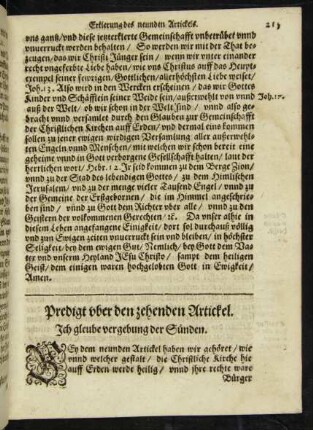 Erklerung des neunden Artickels. 213
vns gantz/vnd diese jetzterklerte Gemeinschafft vnbetrübet vnnd
vnuerruckt werden behalten / So werden wir mit der That be-
zeugen/das wir Christi Jünger sein / wenn wir vnter einander
recht vngeferbte Liebe haben / wie vns Christus auff das Haupt-
exempel seiner fewrigen/Göttlichen/allerhöchsten Liebe weiset/
Joh. 13. Also wird in den Wercken erscheinen / das wir Gottes
Kinder vnd Schäfflein seiner Weide sein/außerwehlt von vnnd Joh. 17.
auß der Welt / ob wir schon in der Welt sind / vnnd also ge-
bracht vnnd versamlet durch den Glauben zur Gemeinschafft
der Christlichen Kirchen auff Erden/vnd dermal eins kommen
sollen zu jener ewigen wirdigen Versamlung aller außerwehl-
ten Engeln vnnd Menschen/mit welchen wir schon bereit eine
geheime vnnd in Gott verborgene Gesellschafft halten/laut der
herrlichen wort/Hebr. 12. Ir seid kommen zu dem Berge Zion/
vnnd zu der Stad des lebendigen Gottes / zu dem Himlischen
Jerusalem/vnd zu der menge vieler Tausend Engel / vnnd zu
der Gemeine der Erstgebornen / die im Himmel angeschrie-
ben sind / vnnd zu Gott dem Richter vber alle / vnnd zu den
Geistern der volkommenen Gerechten/ꝛc. Da vnser alhie in
diesem Leben angefangene Einigkeit / dort sol durchauß völlig
vnd zun Ewigen zeiten vnuerruckt sein vnd bleiben/in höchster
Seligkeit/bey dem ewigen Gut/Nemlich/bey Gott dem Va-
ter vnd vnserm Heyland JEsu Christo / sampt dem heiligen
Geist/dem einigen waren hochgelobten Gott in Ewigkeit/
Amen.
Predigt vber den zehenden Artickel.
Ich gleube vergebung der Sünden.
BEy dem neunden Artickel haben wir gehöret / wie
vnnd welcher gestalt / die Christliche Kirche hie
auff Erden werde heilig / vnnd jhre rechte ware
Bürger